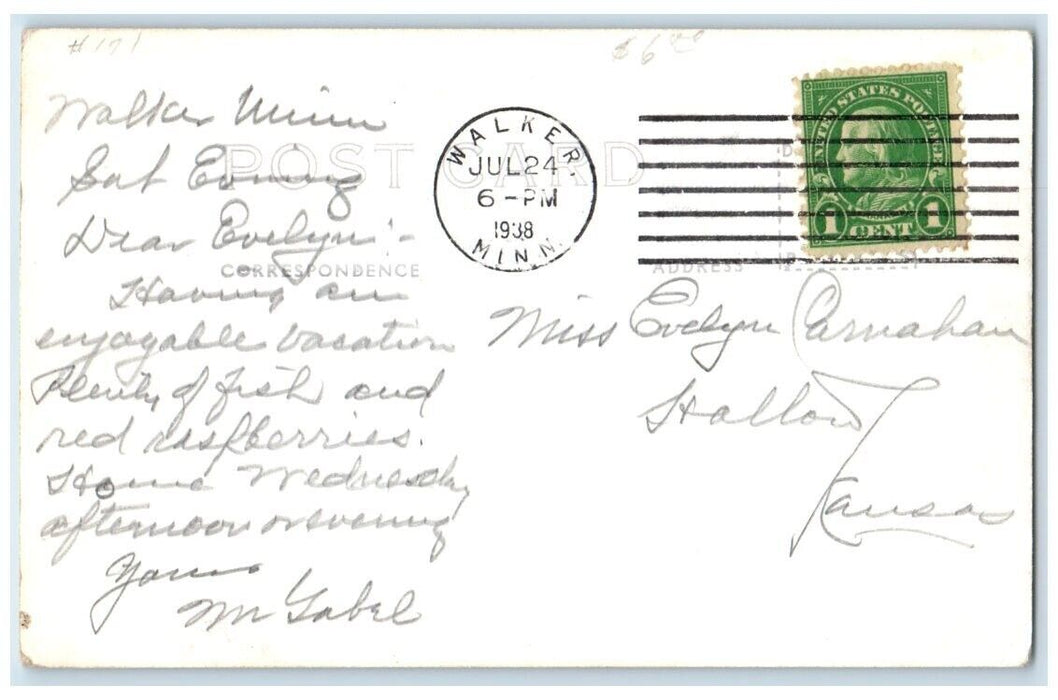 #171
$6.00
Walker Minn
Sat Evning
Dear Evelyn:-
Having an
enjoyable vacation
Plenty of fish and
red raspberries.
Home Wednesday
afternoon or evening
Yours
Mr Gabel
POST CARD
CORRESPONDENCE
WALKER,
JUL 24
6-PM
1938
MINN.
UNITED STATES POSTAGE
1 CENT 1
ADDRESS
Miss Evelyn Carnahan
Hallow
Kansas